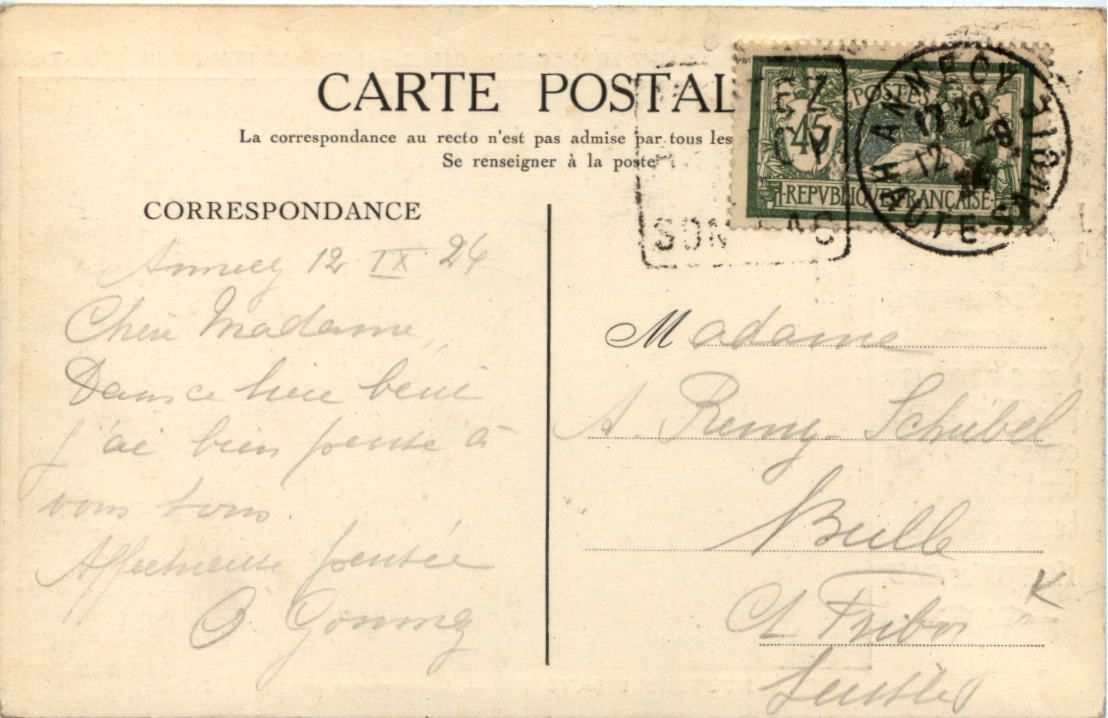 CARTE POSTAL
La correspondance au recto n'est pas admise par tous les
Se renseigner à la poste
EZ
SON LAC
45
POSTES
REPVBLIQVE FRANÇAISE
ANNECY
HAUTE-SAVOIE
17 20
12
CORRESPONDANCE
Annecy 12 IX 24
Chère Madame,
Dans ce lieu béni
j'ai bien pensé à
vous tous.
Affectueuse pensée
Madame
A. Remy-Schubel
Bulle
Ct Fribo
Suisse